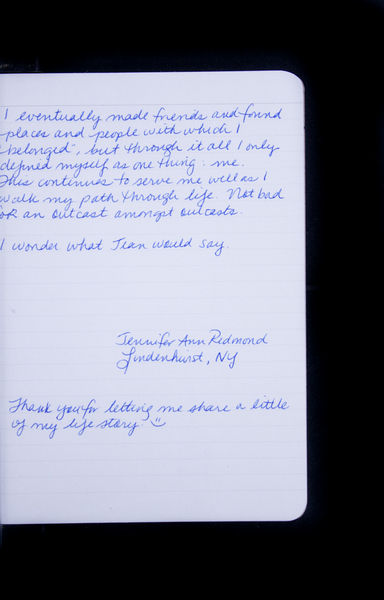 I eventually made friends and found
places and people with which I
"belonged", but through it all I only
defined myself as one thing: me.
This continues to serve me well as I
walk my path through life. Not bad
for an outcast amongst outcasts.
I wonder what Jean would say.
Jennifer Ann Redmond
Lindenhurst, NY
Thank you for letting me share a little
of my life story